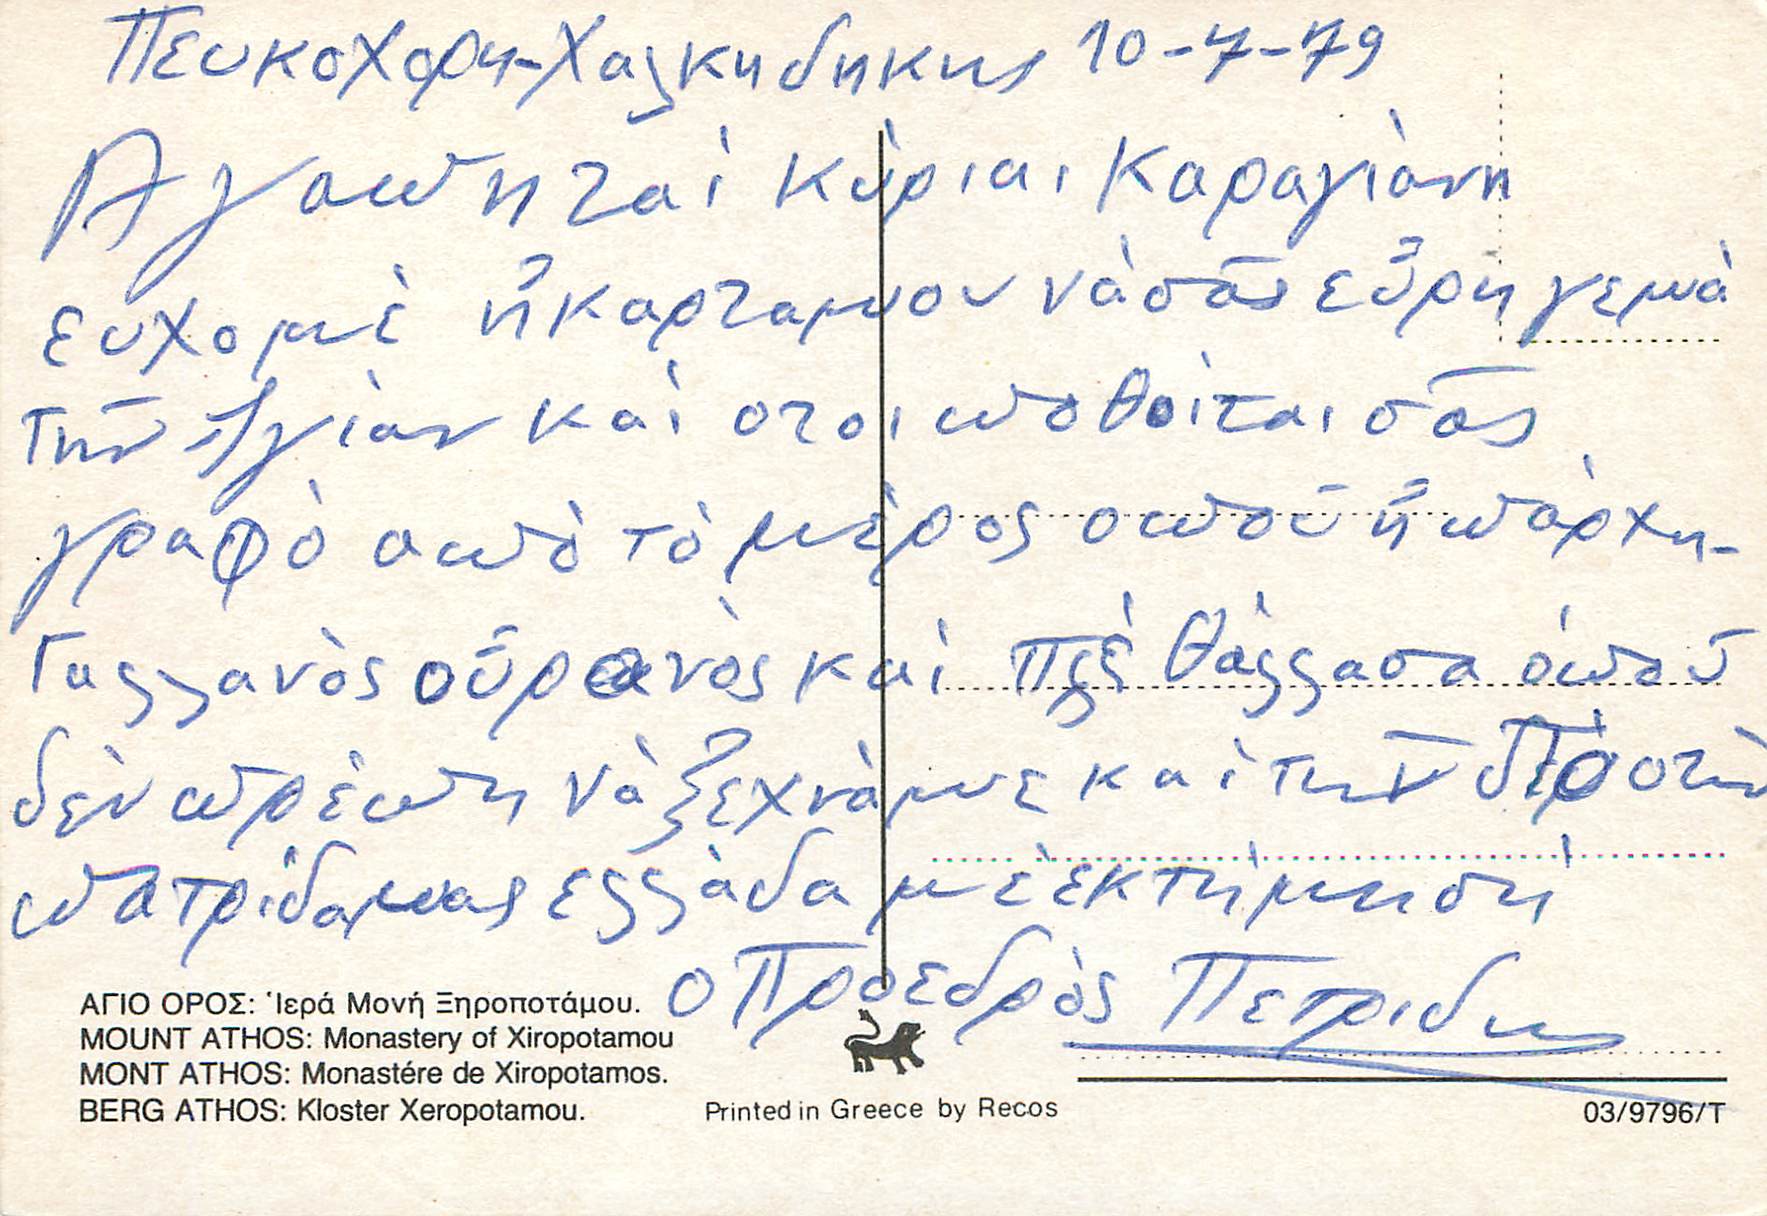 Πευκοχορη-Χαλκηδηκης 10-7-79
Αγαπηταί Κύριαι Καραγιάνη
ευχομέ ἥ καρταμου νὰ σᾶς εὕρη γεμά
τήν ἡγίαν καὶ οτοι ποθοίται σᾶς
γραφὸ απὸ τὸ μέρος οποῦ ἥπάρχη-
Γαλλανὸς οὕρανὸς καὶ Πλὲ θάλλασα όπου
δὲν πρέπη νὰ ξεχνάμε καὶ τὴν διὸ στὴν
πατρίδαμας ελλάδα μὲ ἐκτήμηση
ο Προεδρὸς Πετριδης
ΑΓΙΟ ΟΡΟΣ: Ἱερά Μονή Ξηροποτάμου.
MOUNT ATHOS: Monastery of Xiropotamou
MONT ATHOS: Monastére de Xiropotamos.
BERG ATHOS: Kloster Xeropotamou.
Printed in Greece by Recos
03/9796/T